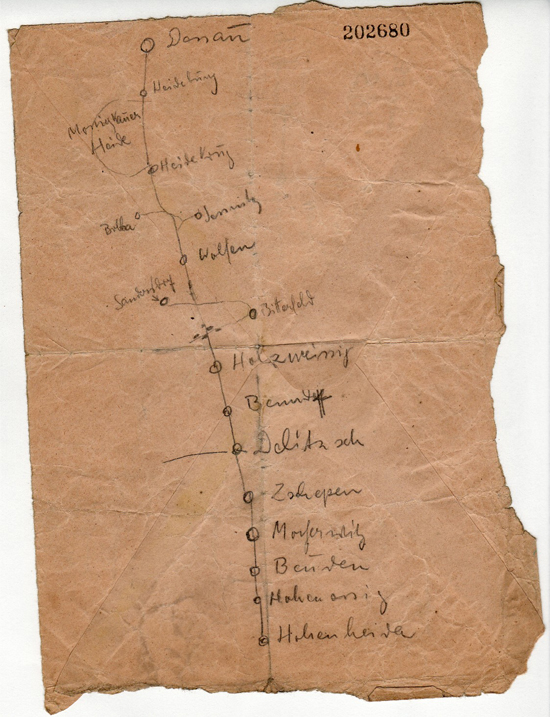 202680
Dessau
Heideburg
Mosigkauer
Heide
Heidekrug
Bobba
Jessnitz
Wolfen
Sandersdorf
Biterfeld
Holzweisig
Benndorf
Delitzsch
Zschepen
Beuden
Hohenossig
Hohenheida